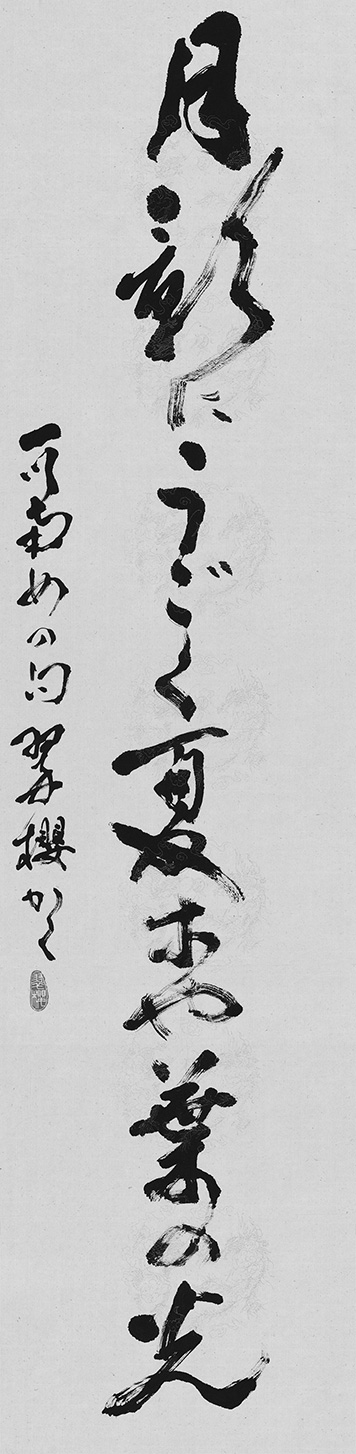 月影にうごく夏木や葉の光
可南女の句 翠櫻かく